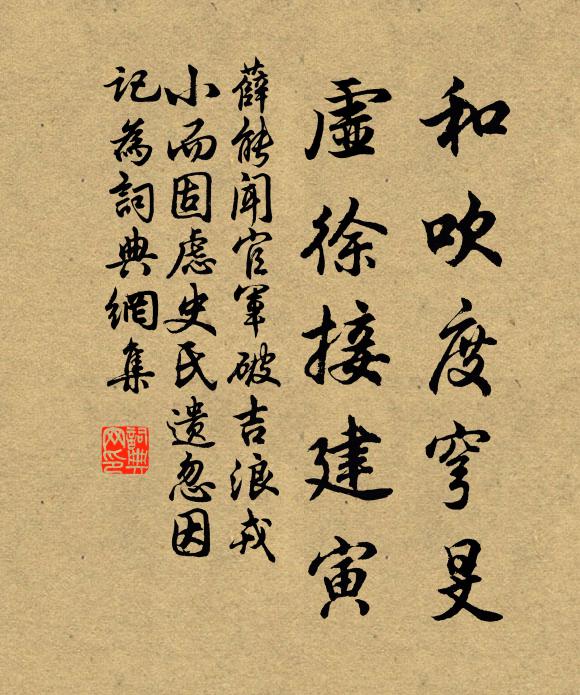 和吹度穹旻
虛徐接建寅
薛能聞官軍破吉浪戎
小而固慮史氏遺忽因
記為詞典網集
詞典
网印